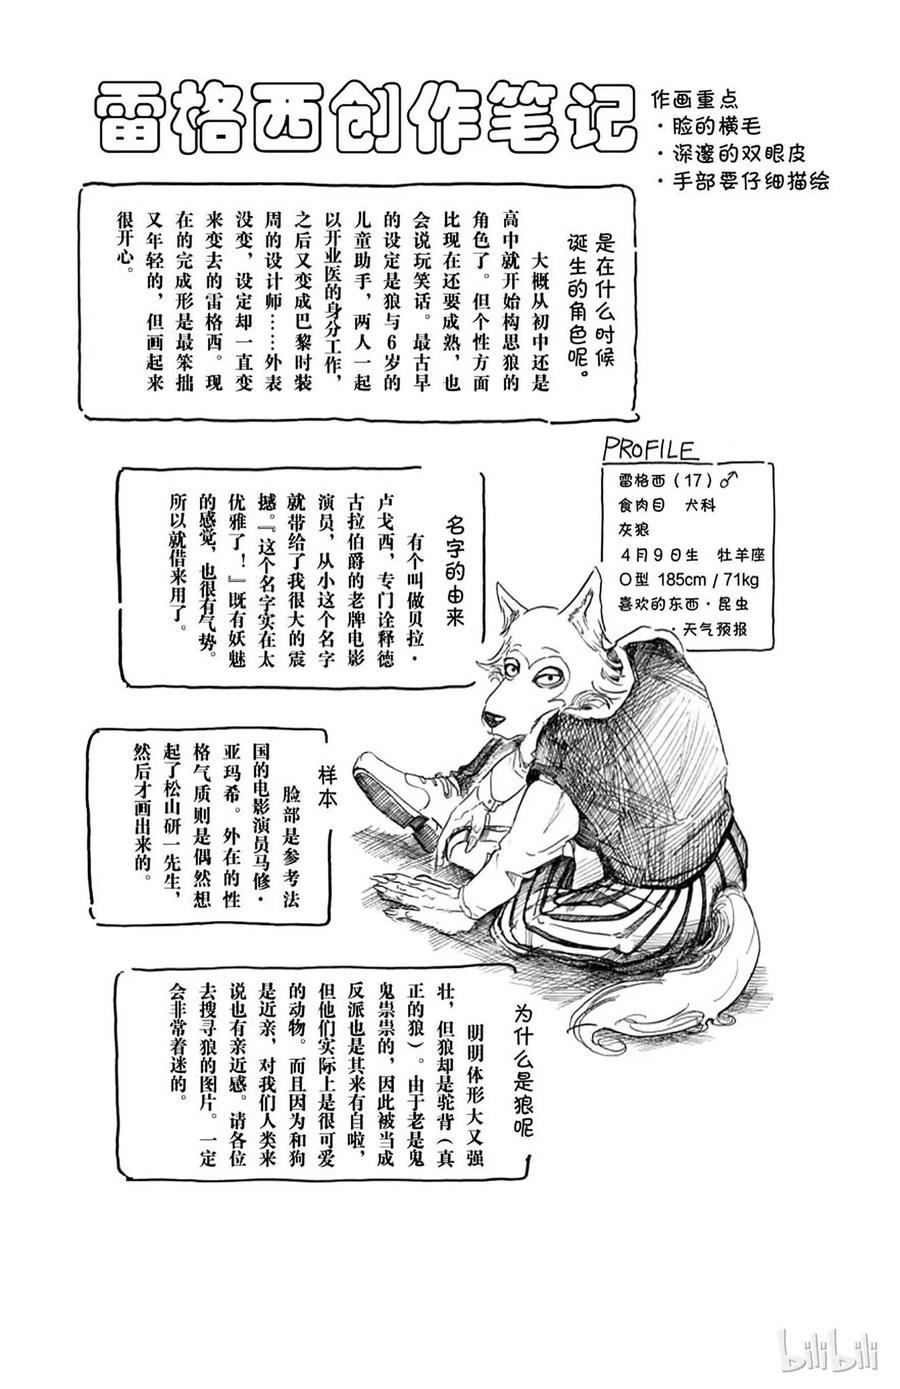 雷格西创作笔记
作画重点
・脸的横毛
・深邃的双眼皮
・手部要仔细描绘
是在什么时候
诞生的角色呢。
大概从初中还是
高中就开始构思狼的
角色了。但个性方面
比现在还要成熟，也
会说玩笑话。最古早
的设定是狼与6岁的
儿童助手，两人一起
以开业医的身分工作，
之后又变成巴黎时装
周的设计师……外表
没变，设定却一直变
来变去的雷格西。现
在的完成形是最笨拙
又年轻的，但画起来
很开心。
PROFILE
雷格西（17）♂
食肉目　犬科
灰狼
4月9日生　牡羊座
O型 185cm / 71kg
喜欢的东西・昆虫
・天气预报
名字的由来
有个叫做贝拉・
卢戈西，专门诠释德
古拉伯爵的老牌电影
演员，从小这个名字
就带给了我很大的震
撼。『这个名字实在太
优雅了！』既有妖魅
的感觉，也很有气势。
所以就借来用了。
样本
脸部是参考法
国的电影演员马修・
亚玛希。外在的性
格气质则是偶然想
起了松山研一先生，
然后才画出来的。
为什么是狼呢
明明体形大又强
壮，但狼却是驼背（真
正的狼）。由于老是鬼
鬼祟祟的，因此被当成
反派也是其来有自啦，
但他们实际上是很可爱
的动物。而且因为和狗
是近亲，对我们人类来
说也有亲近感。请各位
去搜寻狼的图片。一定
会非常着迷的。
bilibili